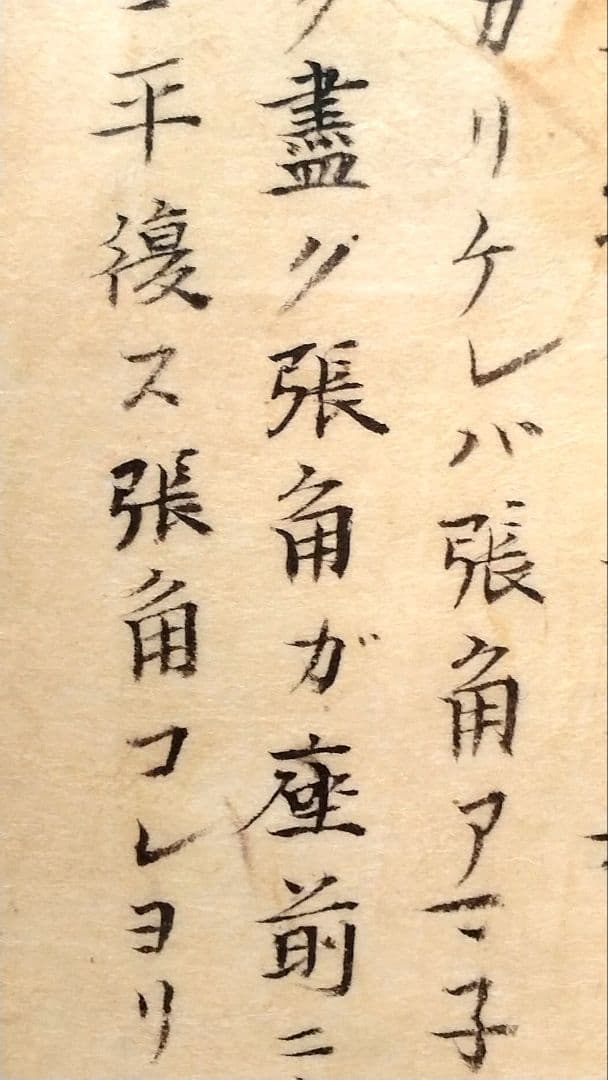 カリケレバ張角アマ子
盡ク張角ガ座前ニ
平復ス張角コレヨリ